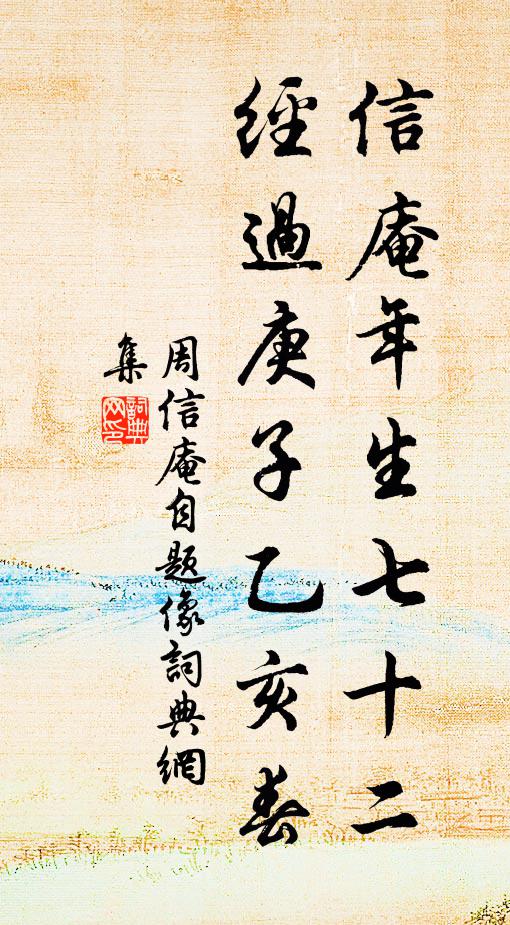 信庵年生七十二
經過庚子乙亥春
周信庵自题像詞典網
集
詞典网印